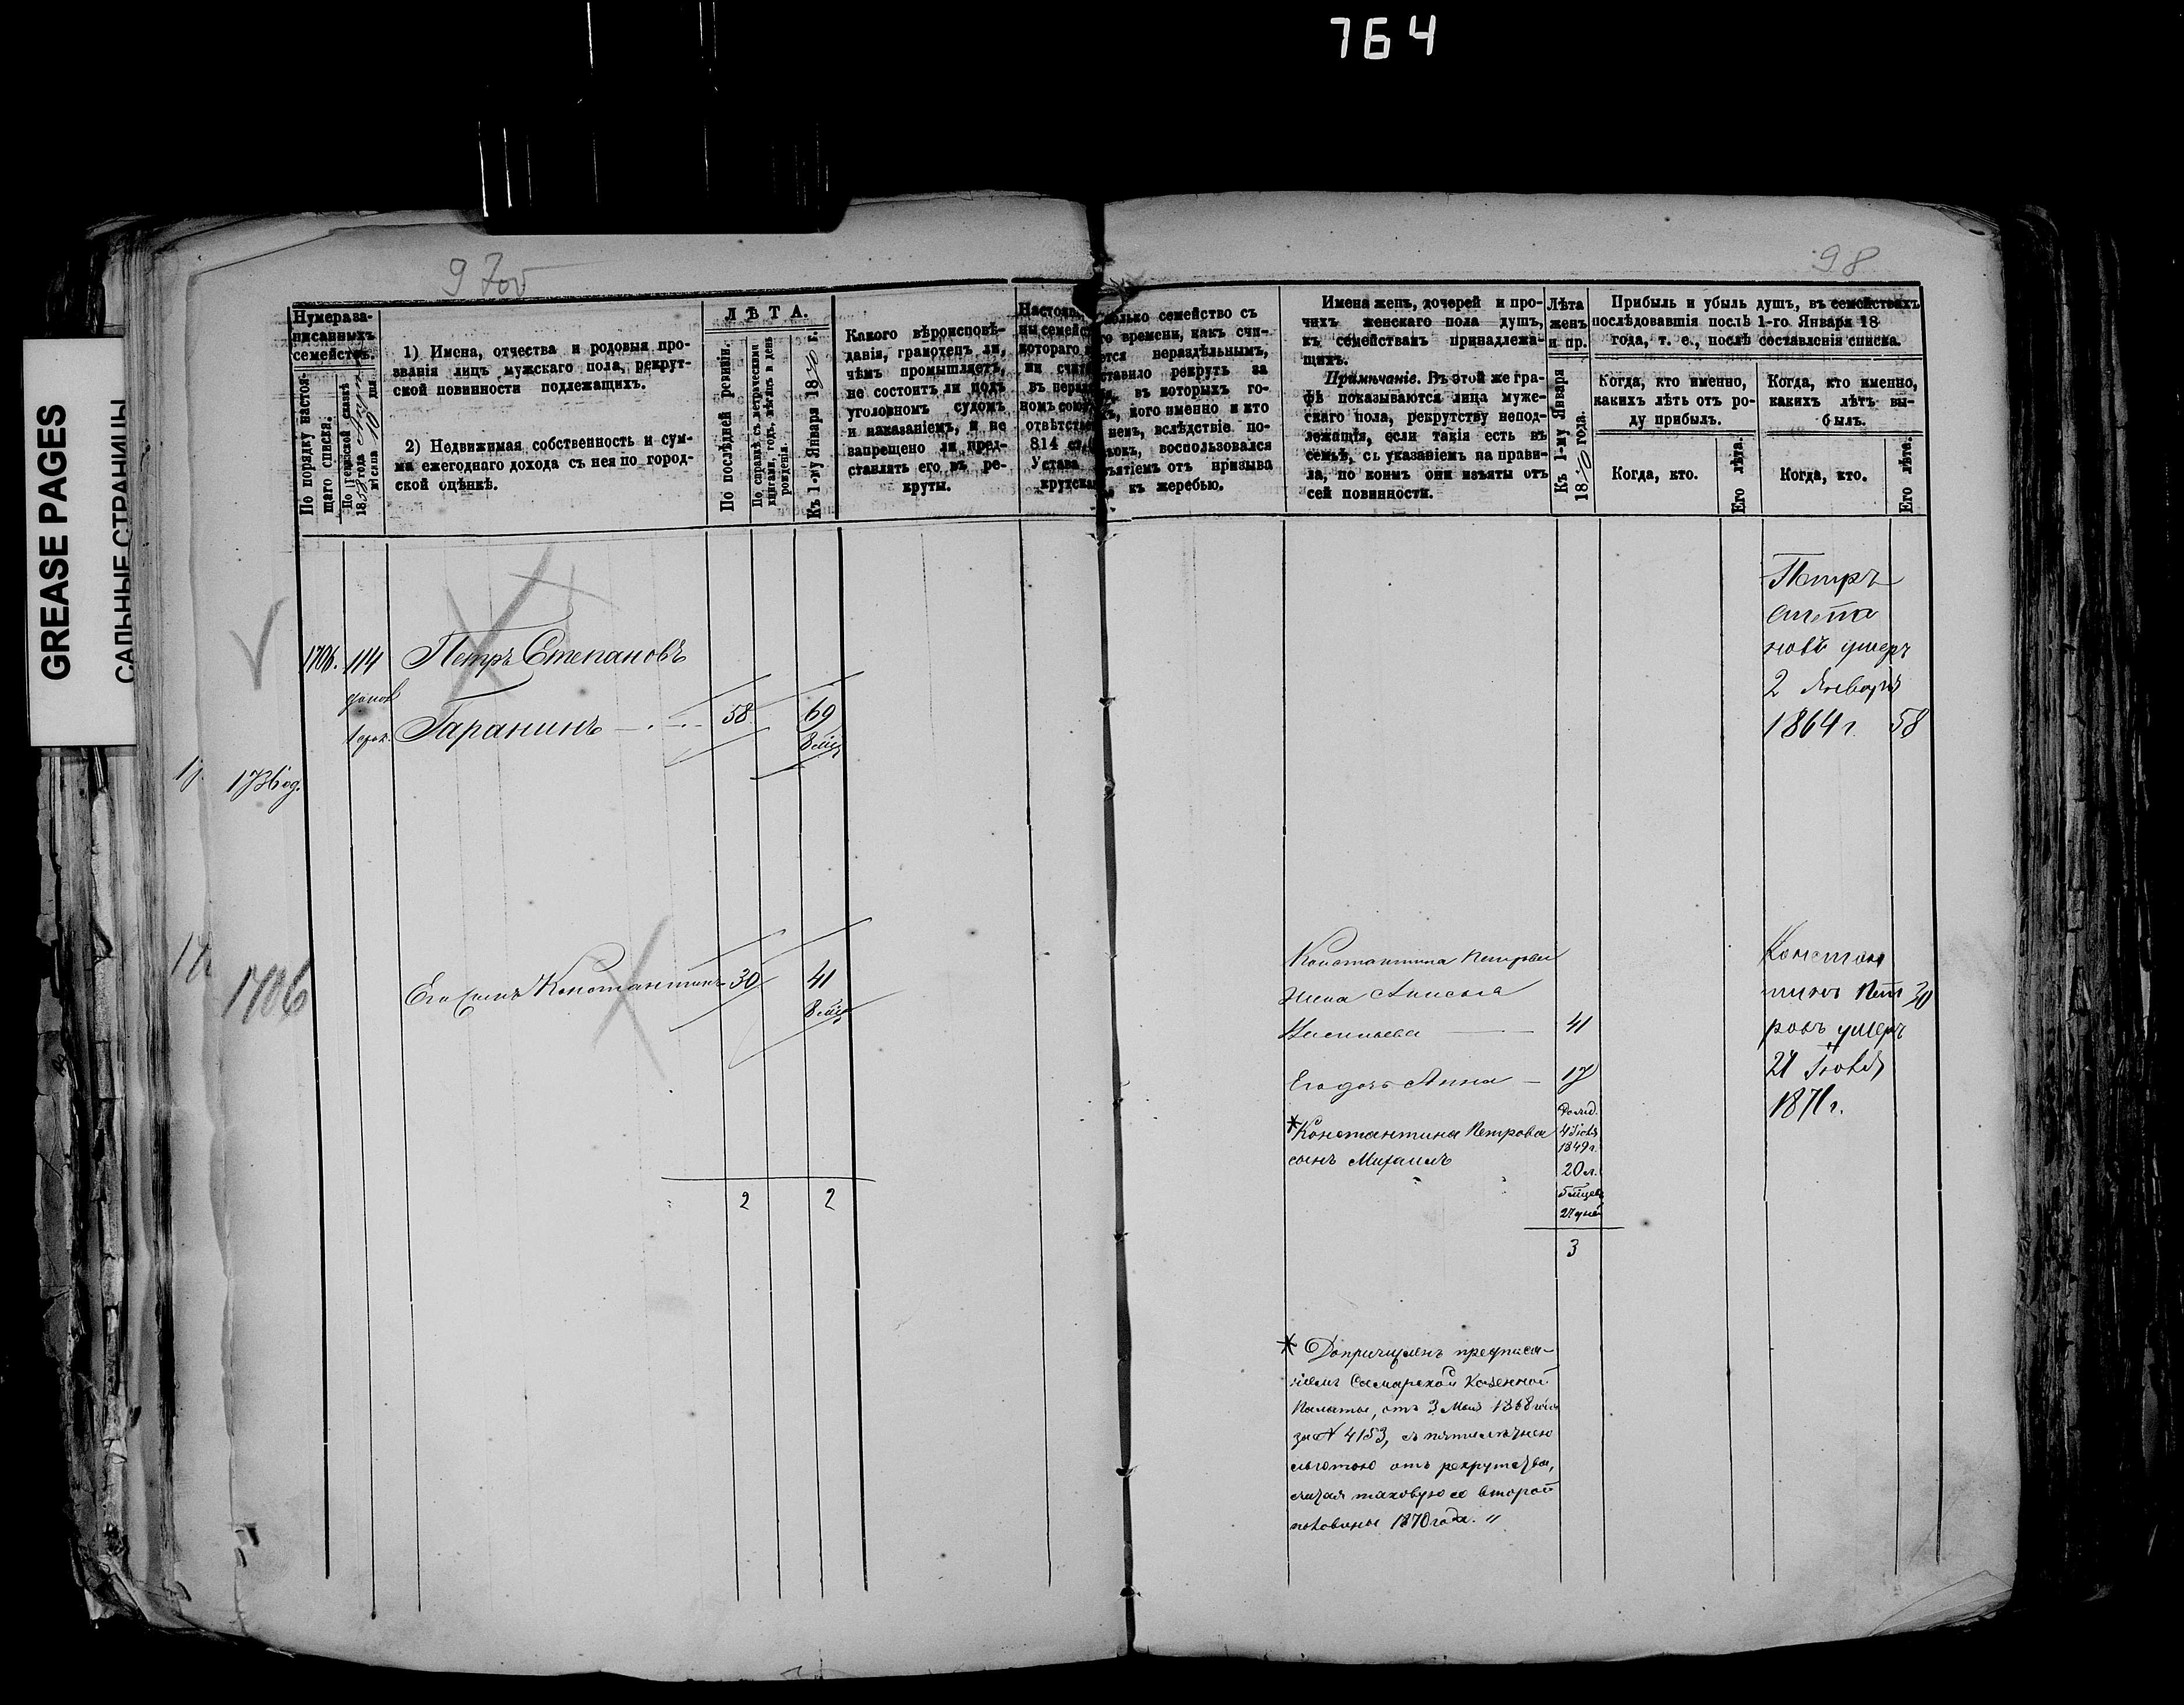 764
GREASE PAGES
САЛЬНЫЕ СТРАНИЦЫ
97об
98
Нумера за-
писанныхъ
семействъ.
По порядку настоя-
щаго списка.
По ревизской сказкѣ
1858 года
мѣсяца 10 дня
1) Имена, отчества и родовыя про-
званія лицъ мужскаго пола, рекрут-
ской повинности подлежащихъ.
2) Недвижимая собственность и сум-
ма ежегоднаго дохода съ нея по город-
ской оцѣнкѣ.
ЛѢТА.
По послѣдней ревизіи.
По справкѣ съ метрическими
книгами, годъ, мѣсяцъ и день
рожденія.
Къ 1-му Января 1870 г.
Какого вѣроисповѣ-
данія, грамотенъ ли,
чѣмъ промышляетъ,
не состоитъ ли подъ
уголовномъ судомъ
и наказаніемъ, и не
запрещено ли пред-
ставлять его въ ре-
круты.
Настоящ
ны семейс
котораго
ми счит
въ нераз
номъ сою
отвѣтстве
814 ст.
Устава
крутска
сколько семейство съ
го времени, какъ счи-
ется нераздѣльнымъ,
ставило рекрутъ за
въ которыхъ го-
кого именно и кто
немъ, вслѣдствіе по-
воспользовался
изъятіемъ отъ призыва
къ жеребью.
Имена женъ, дочерей и про-
чихъ женскаго пола душъ,
къ семействамъ принадлежа-
щихъ.
Примѣчаніе. Въ этой же гра-
фѣ показываются лица муже-
скаго пола, рекрутству непод-
лежащія, если такія есть въ
семьѣ, съ указаніемъ на прави-
ла, по коимъ они изъяты отъ
сей повинности.
Лѣта
женъ
и пр.
Къ 1-му Января
1870 года.
Прибыль и убыль душъ, въ семействахъ
послѣдовавшія послѣ 1-го Января 18
года, т. е., послѣ составленія списка.
Когда, кто именно,
какихъ лѣтъ отъ ро-
ду прибылъ.
Когда, кто.
Его лѣта.
Когда, кто именно,
какихъ лѣтъ вы-
былъ.
Когда, кто.
Его лѣта.
1706. 114 Петръ Степановъ
Гаранинъ 58 69
8 мѣс
Петръ
Степа
новъ умеръ
2 Января
1864 г. 58
1706
Его сынъ Константинъ 30 41
8 мѣс
2 2
Константина Петрова
жена Анисья
Васильева 41
Его дочь Анна 17
*Константина Петрова
сынъ Михаилъ
1849 г.
20 л.
5 мѣсец
27 дней
3
Констан
тинъ Пет 30
ровъ умеръ
21 Іюля
1871 г.
* Допричисленъ предписа-
ніемъ Самарской Казенной
Палаты, отъ 3 Мая 1868 года
за № 4153, съ пятилѣтнею
льготою отъ рекрутства,
считая таковую со второй
половины 1870 года. "